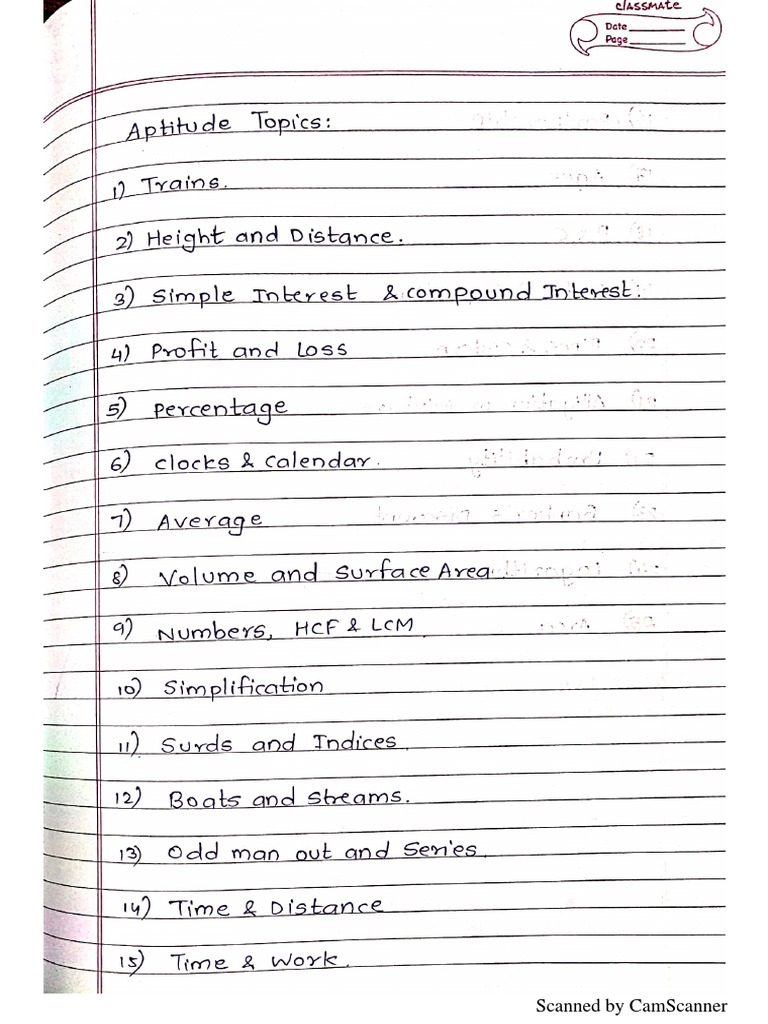 classmate
Date
Page
Aptitude Topics:
1) Trains.
2) Height and Distance.
3) Simple Interest & compound Interest:
4) Profit and Loss
5) Percentage
6) clocks & Calendar.
7) Average
8) Volume and Surface Area.
9) Numbers, HCF & LCM
10) Simplification
11) Surds and Indices.
12) Boats and streams.
13) Odd man out and Series.
14) Time & Distance
15) Time & Work.
Scanned by CamScanner